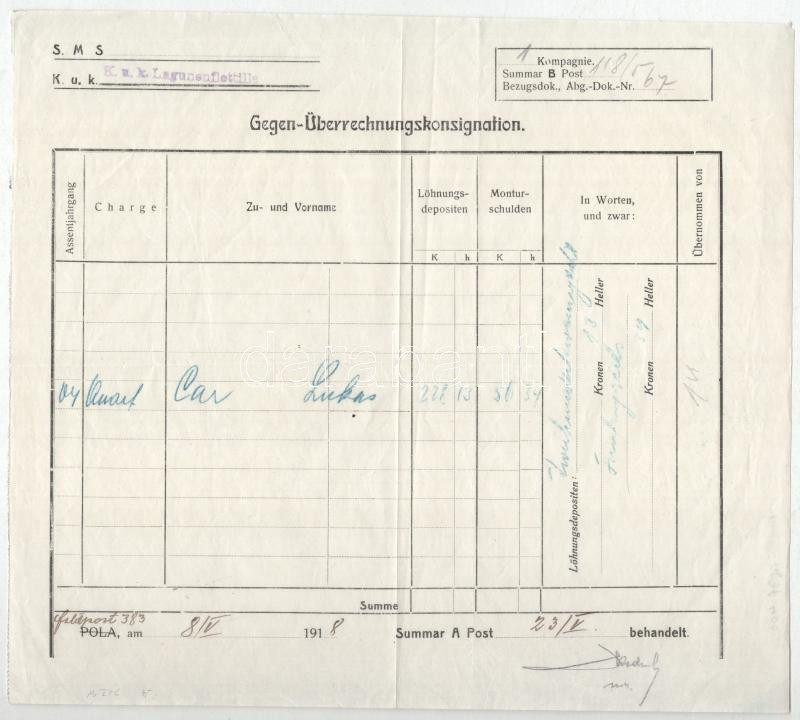 S. M S
K. u. k. K. u. k. Lagunenflottille
1 Kompagnie.
Summar B Post 118/V
Bezugsdok., Abg.-Dok.-Nr. 67
Gegen-Überrechnungskonsignation.
Assentjahrgang
Charge
Zu- und Vorname
Löhnungs-
depositen
Montur-
schulden
In Worten,
und zwar:
Übernommen von
K h K h
04 Car Lukas 13 56 34
Löhnungsdepositen:
Kronen 13 Heller
Kronen Heller
Summe
Feldpost 383
POLA, am 8/V 1918 Summar A Post 23/V. behandelt.
darabanth